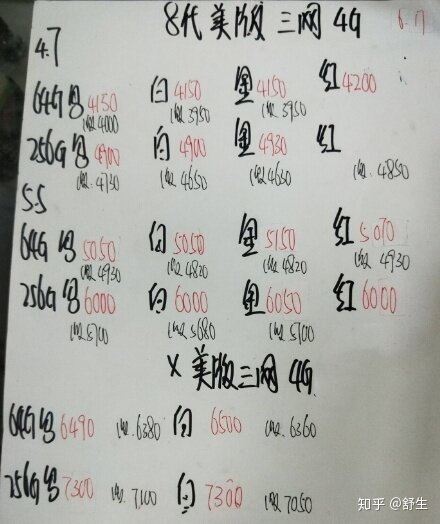 8代美版三网4G 6.17
4.7
64G 黑 4150 白 4150 金 4150 红 4200
收4000 收3950 收3950
256G 黑 4900 白 4900 金 4930 红
收.4730 收.4650 收.4650 收.4850
5.5
64G 黑 5050 白 5050 金 5150 红 5070
收4930 收.4820 收.4820 收.4930
256G 黑 6000 白 6000 金 6050 红 6000
收5700 收.5680 收.5700
X 美版三网 4G
64G 黑 6490 收.6380 白 6500 收.6360
256G 黑 7300 收.7100 白 7300 收7050
知乎 @舒生